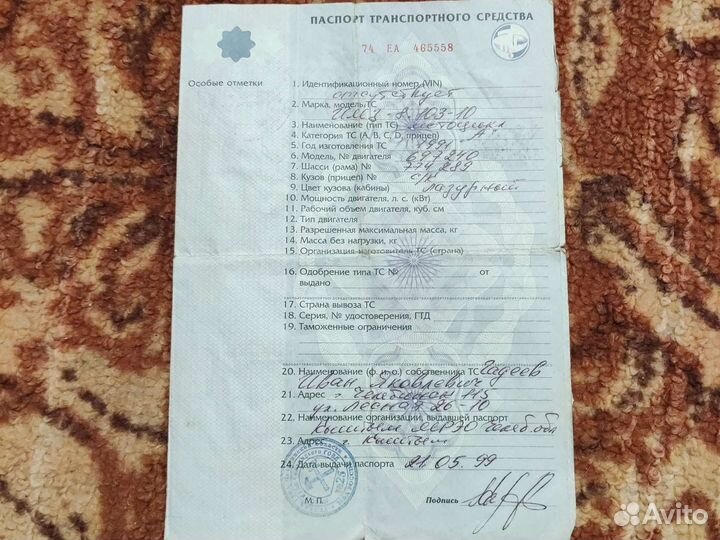 ПАСПОРТ ТРАНСПОРТНОГО СРЕДСТВА
74 ЕА 465558
Особые отметки
1. Идентификационный номер (VIN)
отсутствует
2. Марка, модель ТС ИМЗ-8.103-10
3. Наименование (тип ТС) мотоцикл
4. Категория ТС (A, B, C, D, прицеп) "А"
5. Год изготовления ТС 1991
6. Модель, № двигателя 697210
7. Шасси (рама) № 774289
8. Кузов (прицеп) №
9. Цвет кузова (кабины) Лазурный
10. Мощность двигателя, л. с. (кВт)
11. Рабочий объем двигателя, куб. см
12. Тип двигателя
13. Разрешенная максимальная масса, кг
14. Масса без нагрузки, кг
15. Организация-изготовитель ТС (страна)
16. Одобрение типа ТС № от
выдано
17. Страна вывоза ТС
18. Серия, № удостоверения, ГТД
19. Таможенные ограничения
20. Наименование (ф. и. о.) собственника ТС
Иван Яковлевич
21. Адрес г. Челябинск 115
ул. Лесная 26-10
22. Наименование организации, выдавшей паспорт
Кыштым МРЭО Челяб. обл
23. Адрес г. Кыштым
24. Дата выдачи паспорта 21.05.99
М. П. Подпись
Avito